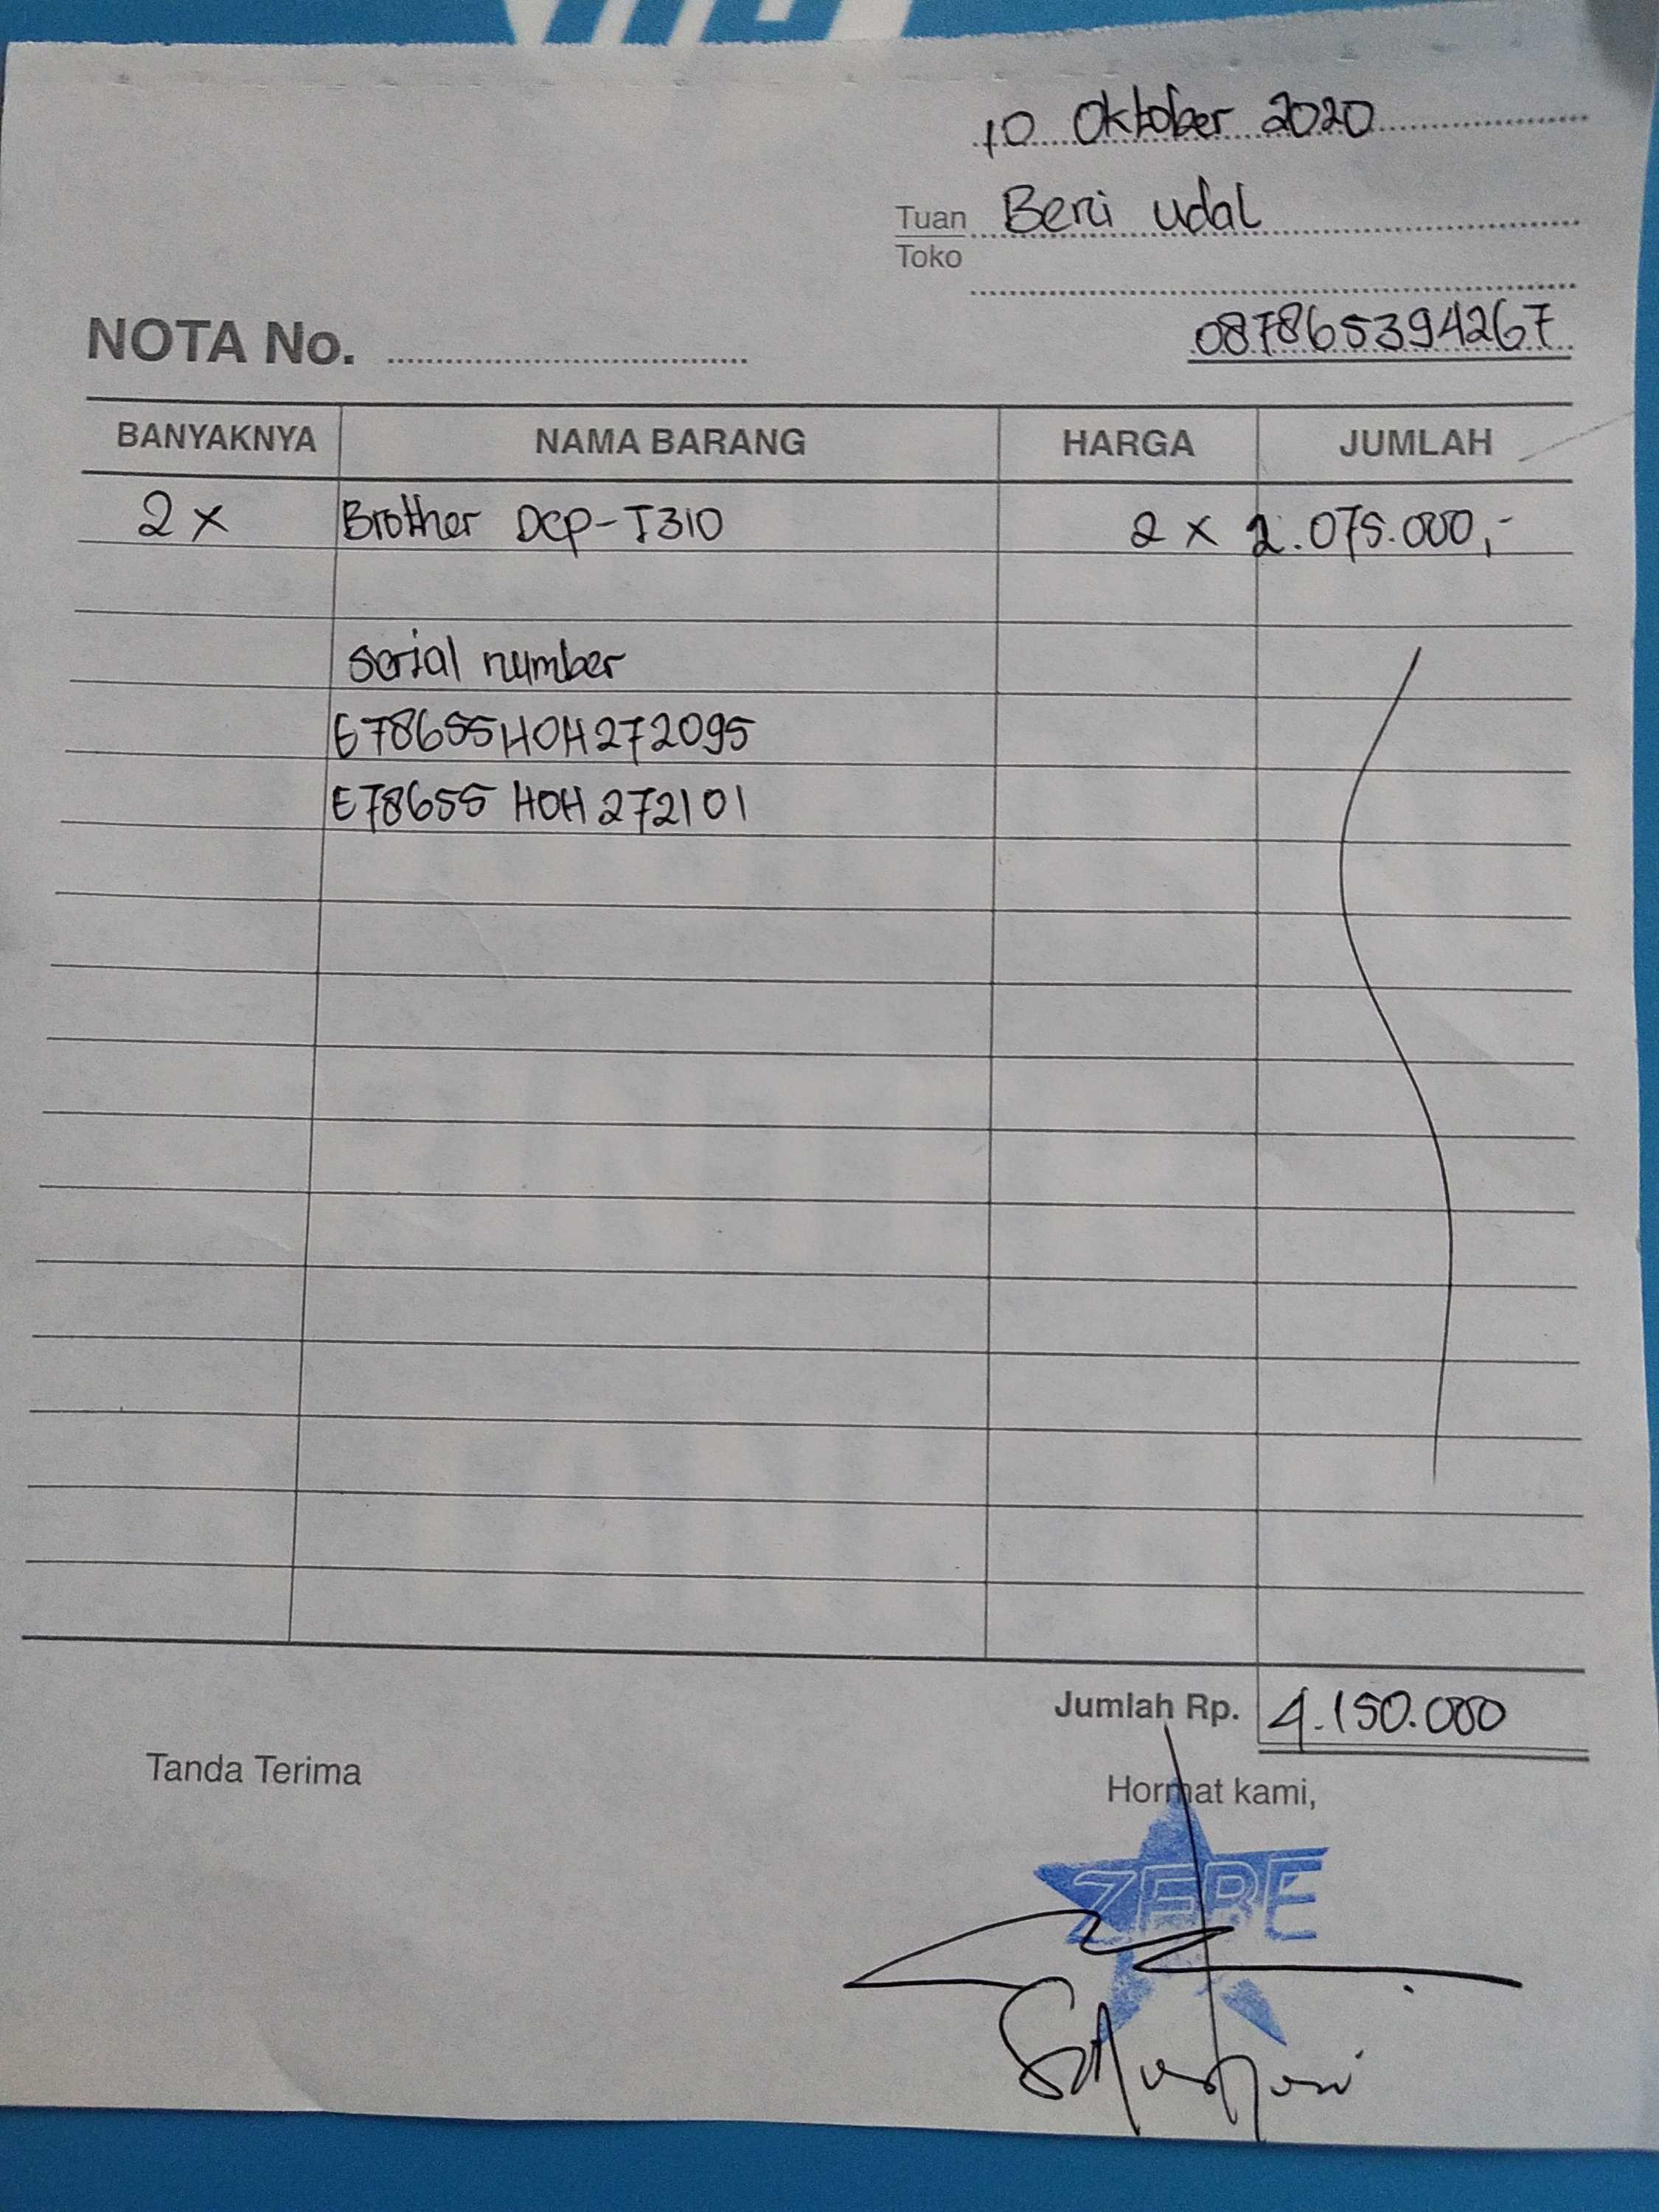 10 Oktober 2020
Tuan Beni udal
Toko
087865394267
NOTA No.
BANYAKNYA NAMA BARANG HARGA JUMLAH
2 x Brother Dcp-T310 2 x 2.075.000,-
serial number
E78655H0H272095
E78655 H0H272101
Jumlah Rp. 4.150.000
Tanda Terima Hormat kami,
ZEBE